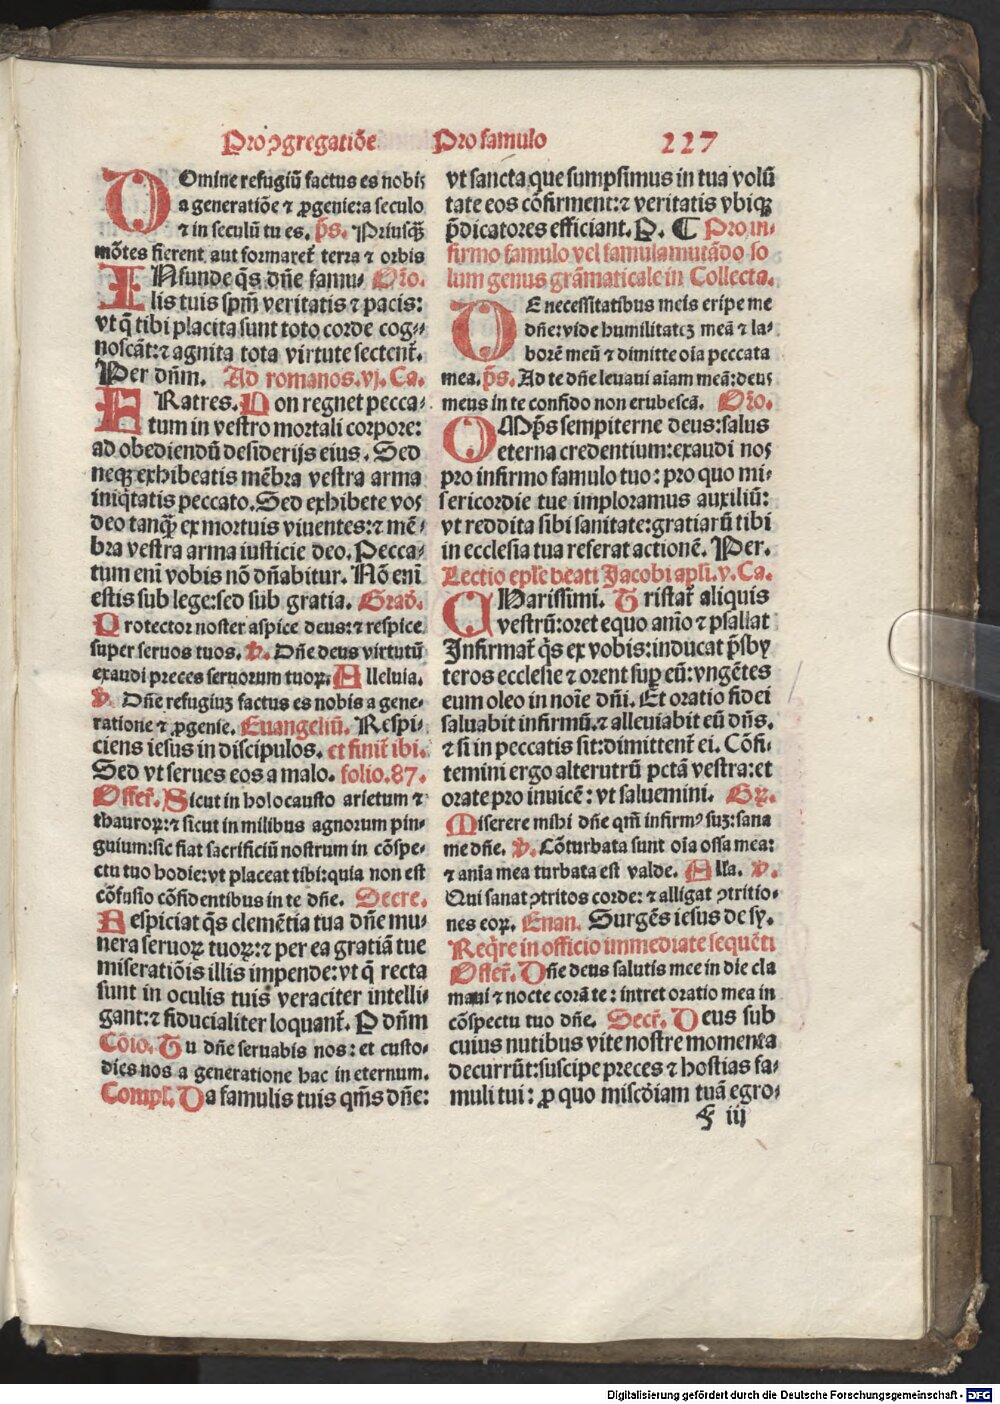 Pro ꝯgregatiõe Pro famulo 227
DOmine refugiũ factus es nobis
a generatiõe ⁊ ꝓgenie:a seculo
⁊ in seculũ tu es. p̃s. Priusq̃ꝫ
mõtes fierent aut formaret᷑ terra ⁊ orbis
INfunde q̃s dñe famu- Orõ.
lis tuis spm̃ veritatis ⁊ pacis:
vt q̃ tibi placita sunt toto corde cog-
noscãt:⁊ agnita tota virtute sectent᷑.
Per dñm. Ad romanos.vj. Ca.
FRatres. Non regnet pecca-
tum in vestro mortali corpore:
ad obediendũ desiderijs eius. Sed
neqꝫ exhibeatis mẽbra vestra arma
iniq̃tatis peccato. Sed exhibete vos
deo tanq̃ꝫ ex mortuis viuentes:⁊ mẽ-
bra vestra arma iusticie deo. Pecca-
tum eni᷑ vobis nõ dñabitur. Nõ eni᷑
estis sub lege:sed sub gratia. Grad̃.
Protector noster aspice deus:⁊ respice
super seruos tuos. ꝟ. Dñe deus virtutũ
exaudi preces seruorum tuoꝝ. Alleluia.
ꝟ. Dñe refugiuꝫ factus es nobis a gene-
ratione ⁊ ꝓgenie. Euangeliũ. Respi-
ciens iesus in discipulos. et finit᷑ ibi.
Sed vt serues eos a malo. folio.87.
Offer̃. Sicut in holocausto arietum ⁊
thauroꝝ:⁊ sicut in milibus agnorum pin-
guium:sic fiat sacrificiũ nostrum in cõspe-
ctu tuo hodie:vt placeat tibi:quia non est
cõfusio cõfidentibus in te dñe. Secre.
Respiciat q̃s clemẽtia tua dñe mu-
nera seruoꝝ tuoꝝ:⁊ per ea gratiã tue
miseratiõis illis impende:vt q̃ recta
sunt in oculis tuis veraciter intelli-
gant:⁊ fiducialiter loquant᷑. P dñm
Cõio. Tu dñe seruabis nos: et custo-
dies nos a generatione hac in eternum.
Compl. Da famulis tuis qm̃s dñe:
vt sancta que sumpsimus in tua volũ
tate eos cõfirment:⁊ veritatis vbiqꝫ
p̃dicatores efficiant. P. ¶ Pro in-
firmo famulo vel famula mutãdo so
lum genus grãmaticale in Collecta.
DE necessitatibus meis eripe me
dñe:vide humilitateꝫ meã ⁊ la-
borẽ meũ ⁊ dimitte oĩa peccata
mea. p̃s. Ad te dñe leuaui aĩam meã:deus
meus in te confido non erubescã. Orõ.
OMp̃s sempiterne deus:salus
eterna credentium:exaudi nos
pro infirmo famulo tuo: pro quo mi-
sericordie tue imploramus auxiliũ:
vt reddita sibi sanitate:gratiarũ tibi
in ecclesia tua referat actionẽ. Per.
Lectio epl̃e beati Jacobi apl̃i.v.Ca.
CHarissimi. Tristat᷑ aliquis
vestrũ:oret equo anĩo ⁊ psallat
Infirmat᷑ q̃s ex vobis:inducat p̃sby
teros ecclesie ⁊ orent suꝑ eũ:vngẽtes
eum oleo in noĩe dñi. Et oratio fidei
saluabit infirmũ.⁊ alleuiabit eũ dñs.
⁊ si in peccatis sit:dimittent᷑ ei. Cõfi-
temini ergo alterutrũ pctã vestra:et
orate pro inuicẽ: vt saluemini. Gꝝ.
Miserere mihi dñe qm̃ infirmꝰ suꝫ:sana
me dñe. ꝟ. Cõturbata sunt oĩa ossa mea:
⁊ anĩa mea turbata est valde. All̃a. ꝟ.
Qui sanat ꝯtritos corde: ⁊ alligat ꝯtritio-
nes eoꝝ. Euan. Surgẽs iesus de sy.
Req̃re in officio immediate sequẽti
Offer̃. Dñe deus salutis mee in die cla
maui ⁊ nocte corã te: intret oratio mea in
cõspectu tuo dñe. Secr̃. Deus sub
cuius nutibus vite nostre momenta
decurrũt:suscipe preces ⁊ hostias fa-
muli tui: ꝓ quo mis̃cdiam tuã egro-
iij
Digitalisierung gefördert durch die Deutsche Forschungsgemeinschaft - DFG